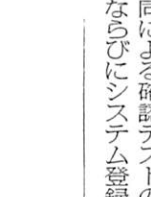 同による確認テストの
ならびにシステム登録